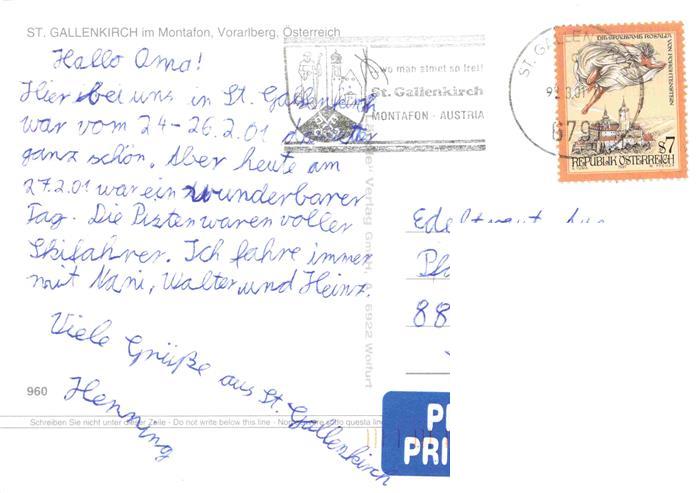 ST. GALLENKIRCH im Montafon, Vorarlberg, Österreich
Hallo Oma!
Hier bei uns in St. Gallenkirch
war vom 24-26.2.01 das Wetter
ganz schön. Aber heute am
27.2.01 war ein wunderbarer
Tag. Die Pisten waren voller
Skifahrer. Ich fahre immer
mit Nani, Walter und Heinz.
Viele Grüße aus St. Gallenkirch
Henning
960
Schreiben Sie nicht unter dieser Zeile - Do not write below this line - Non sotto questa
wo man atmet so frei!
St. Gallenkirch
MONTAFON - AUSTRIA
ST. GALLEN
6791
DIE GRAUSAME ROSALIA VON PÖTTENSTEIN
S7
REPUBLIK ÖSTERREICH
Verlag GmbH, A 6922 Wolfurt
88